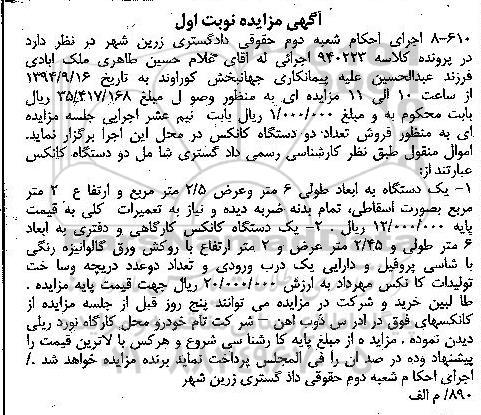 آگهی مزایده نوبت اول
۸-۶۱۰ اجرای احکام شعبه دوم حقوقی دادگستری زرین شهر در نظر دارد
در پرونده کلاسه ۹۴۰۲۳۳ اجرائی له اقای غلام حسین طاهری ملک ابادی
فرزند عبدالحسین علیه پیمانکاری جهانبخش کوراوند به تاریخ ۱۳۹۴/۹/۱۶
از ساعت ۱۰ الی ۱۱ مزایده ای به منظور وصو ل مبلغ ۳۵/۴۱۷/۱۶۸ ریال
بابت محکوم به و مبلغ ۱/۰۰۰/۰۰۰ ریال بابت نیم عشر اجرایی جلسه مزایده
ای به منظور فروش تعداد دو دستگاه کانکس در محل این اجرا برگزار نماید.
اموال منقول طبق نظر کارشناسی رسمی داد گستری شا مل دو دستگاه کانکس
عبارتند از:
۱- یک دستگاه به ابعاد طولی ۶ متر وعرض ۲/۵ متر مربع و ارتفا ع ۲ متر
مربع بصورت اسقاطی، تمام بدنه ضربه دیده و نیاز به تعمیرات کلی به قیمت
پایه ۱۲/۰۰۰/۰۰۰ ریال ۲- یک دستگاه کانکس کارگاهی و دفتری به ابعاد
۶ متر طولی و ۲/۴۵ متر عرض و ۲ متر ارتفاع با روکش ورق گالوانیزه رنگی
با شاسی پروفیل و دارایی یک درب ورودی و تعداد دوعدد دریچه وسا خت
تولیدات کا نکس مهرداد به ارزش ۲۰/۰۰۰/۰۰۰ ریال جهت قیمت پایه مزایده .
طا لبین خرید و شرکت در مزایده می توانند پنج روز قبل از جلسه مزایده از
کانکسهای فوق در ادر س ذوب آهن – شر کت تام خودرو محل کارگاه نورد ریلی
دیدن نموده . مزاید ه از مبلغ پایه کا رشنا سی شروع و هرکس با لاترین قیمت را
پیشنهاد وده در صد ان را فی المجلس پرداخت نماید برنده مزایده خواهد شد ./
اجرای احکا م شعبه دوم حقوقی داد گستری زرین شهر
۸۹۰/ م الف